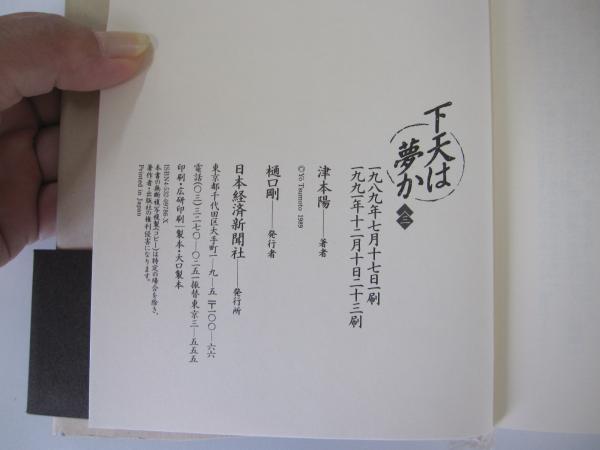 下天は
夢か
一九八九年七月十七日一刷
一九九一年十二月十日二十三刷
津本陽——著者
©Yō Tsumoto 1989
樋口剛——発行者
日本経済新聞社——発行所
東京都千代田区大手町一—九—五 〒一〇〇—六六
電話(〇三)三二七〇—〇二五一振替東京三—五五五
印刷・広研印刷｜製本・大口製本
本書の無断複写複製(コピー)は特定の場合を除き、
著作者・出版社の権利侵害になります。
Printed in Japan